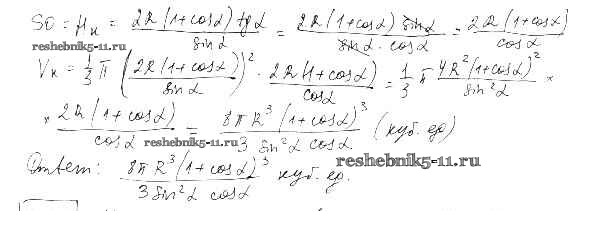 SO = Hк = 2R(1+cosα) tgα / sinα = 2R(1+cosα) sinα / sinα · cosα = 2R(1+cosα) / cosα
reshebnik5-11.ru
Vк = 1/3 π (2R(1+cosα) / sinα)² · 2R(1+cosα) / cosα = 1/3 π 4R²(1+cosα)² / sin²α ×
× 2R(1+cosα) / cosα = 8πR³(1+cosα)³ / 3 sin²α cosα (куб. ед)
reshebnik5-11.ru
Ответ: 8πR³(1+cosα)³ / 3 sin²α cosα куб. ед.
reshebnik5-11.ru